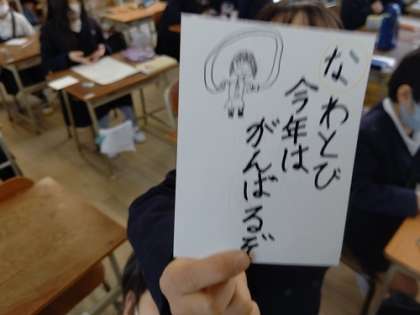 なわとび
今年は
がんばるぞ